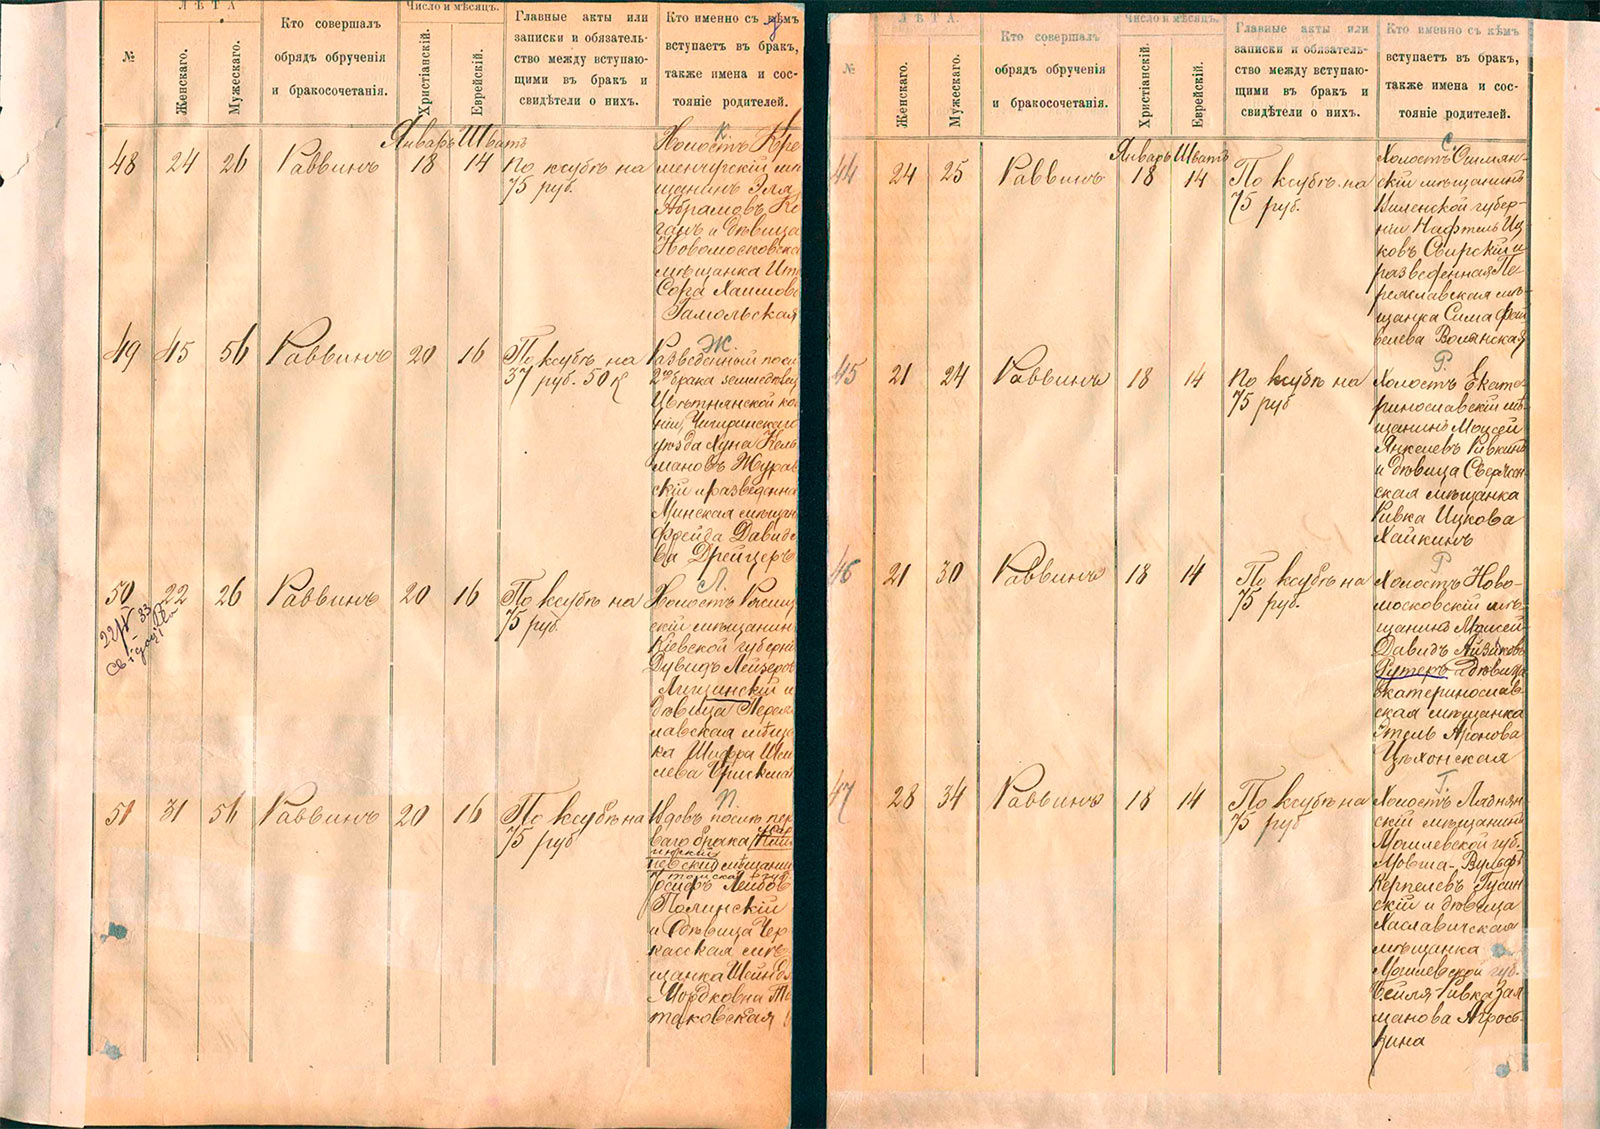 №
ЛѢТА
Женскаго.
Мужескаго.
Кто совершалъ
обрядъ обрученія
и бракосочетанія.
Число и мѣсяцъ.
Христіанскій.
Еврейскій.
Главные акты или
записки и обязатель-
ство между вступаю-
щими въ бракъ и
свидѣтели о нихъ.
Кто именно съ кѣмъ
вступаетъ въ бракъ,
также имена и сос-
тояніе родителей.
Январь Шватъ
48 24 26 Раввинъ 18 14 По ксубѣ на
75 руб.
К.
Холостъ Кре
менчугскій мѣ
щанинъ Эля
Абрамовъ Ко
ганъ и дѣвица
Новомосковска
мѣщанка Ита
Сора Хаимова
Гамольская
49 45 56 Раввинъ 20 16 По ксубѣ на
37 руб. 50 к
Ж.
Разведенный посл
2го брака земледѣлец
Цвѣтнянской ко
ніи, Чигиринскаго
уѣзда Хуна Каль
мановъ Журав
скій и разведенна
Минская мѣщан
Фрейда Давидо
ва Дрейцеръ
50 22 26 Раввинъ 20 16 По ксубѣ на
75 руб.
22/V 33
Л.
Холостъ Ржищ
скій мѣщанин
Кіевской губерн
Дувидъ Лейзеров
Лищинскій и
дѣвица Перея
лавская мѣща
ка Шифра Шм
лева
51 31 56 Раввинъ 20 16 По ксубѣ на
75 руб
П.
Вдовъ послѣ пер
ваго брака
мѣщанин
Іосифъ Лейбов
Полинскій
и дѣвица Чер
касская мѣ
щанка Шейндл
Мордковна По
таковская
№
ЛѢТА.
Женскаго.
Мужескаго.
Кто совершалъ
обрядъ обрученія
и бракосочетанія.
Число и мѣсяцъ.
Христіанскій.
Еврейскій.
Главные акты или
записки и обязатель-
ство между вступаю-
щими въ бракъ и
свидѣтели о нихъ.
Кто именно съ кѣмъ
вступаетъ въ бракъ,
также имена и сос-
тояніе родителей.
Январь Шватъ
44 24 25 Раввинъ 18 14 По ксубѣ на
75 руб.
С.
Холостъ Ошмян-
скій мѣщанинъ
Виленской губер-
ніи Нафтель Иц
ковъ Свирскій и
разведенная Пе-
реяславская мѣ-
щанка Сима Фай
велева Волынская
45 21 24 Раввинъ 18 14 По ксубѣ на
75 руб
Р.
Холостъ Екате-
ринославскій мѣ-
щанинъ Моисей
Янкелевъ Ривкинъ
и дѣвица
ская мѣщанка
Ривка Ицкова
Хайкинъ
46 21 30 Раввинъ 18 14 По ксубѣ на
75 руб.
Р
Холостъ Ново-
московскій мѣ-
щанинъ Моисей-
Давидъ Айзиковъ
Рутеръ и дѣвица
Екатеринослав-
ская мѣщанка
Этель Аронова
Цѣхонская
47 28 34 Раввинъ 18 14 По ксубѣ на
75 руб
Г.
Холостъ Ляднян-
скій мѣщанинъ
Могилевской губ.
Мовша-Вульфъ
Керпелевъ Гусин
скій и дѣвица
Хаславичская
мѣщанка
Могилевской губ.
Бейля-Ривка Зал
манова Агрось-
кина